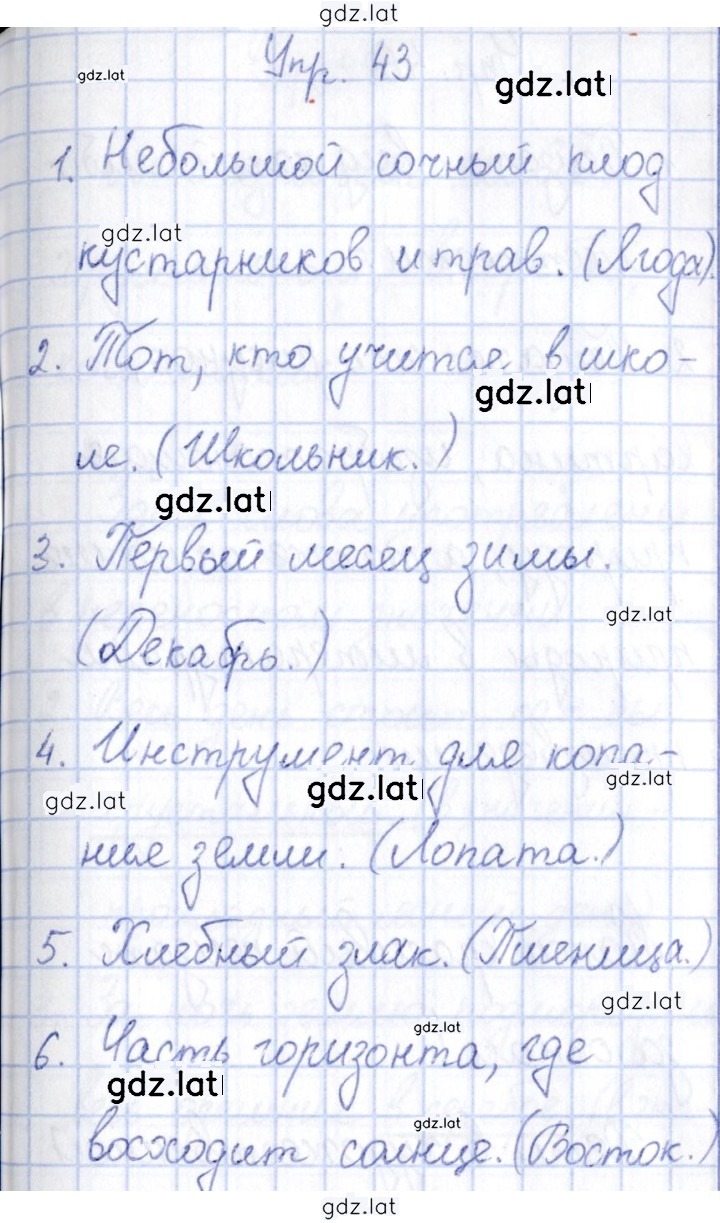 gdz.lat
Упр. 43
gdz.lat
gdz.lat
1. Небольшой сочный плод
gdz.lat
кустарников и трав. (Ягода).
2. Тот, кто учится в шко-
gdz.lat
ле. (Школьник.)
gdz.lat
3. Первый месяц зимы.
gdz.lat
(Декабрь.)
4. Инструмент для копа-
gdz.lat
gdz.lat
gdz.lat
ния земли. (Лопата.)
5. Хлебный злак. (Пшеница.)
gdz.lat
gdz.lat
6. Часть горизонта, где
gdz.lat
gdz.lat
восходит солнце. (Восток.)
gdz.lat